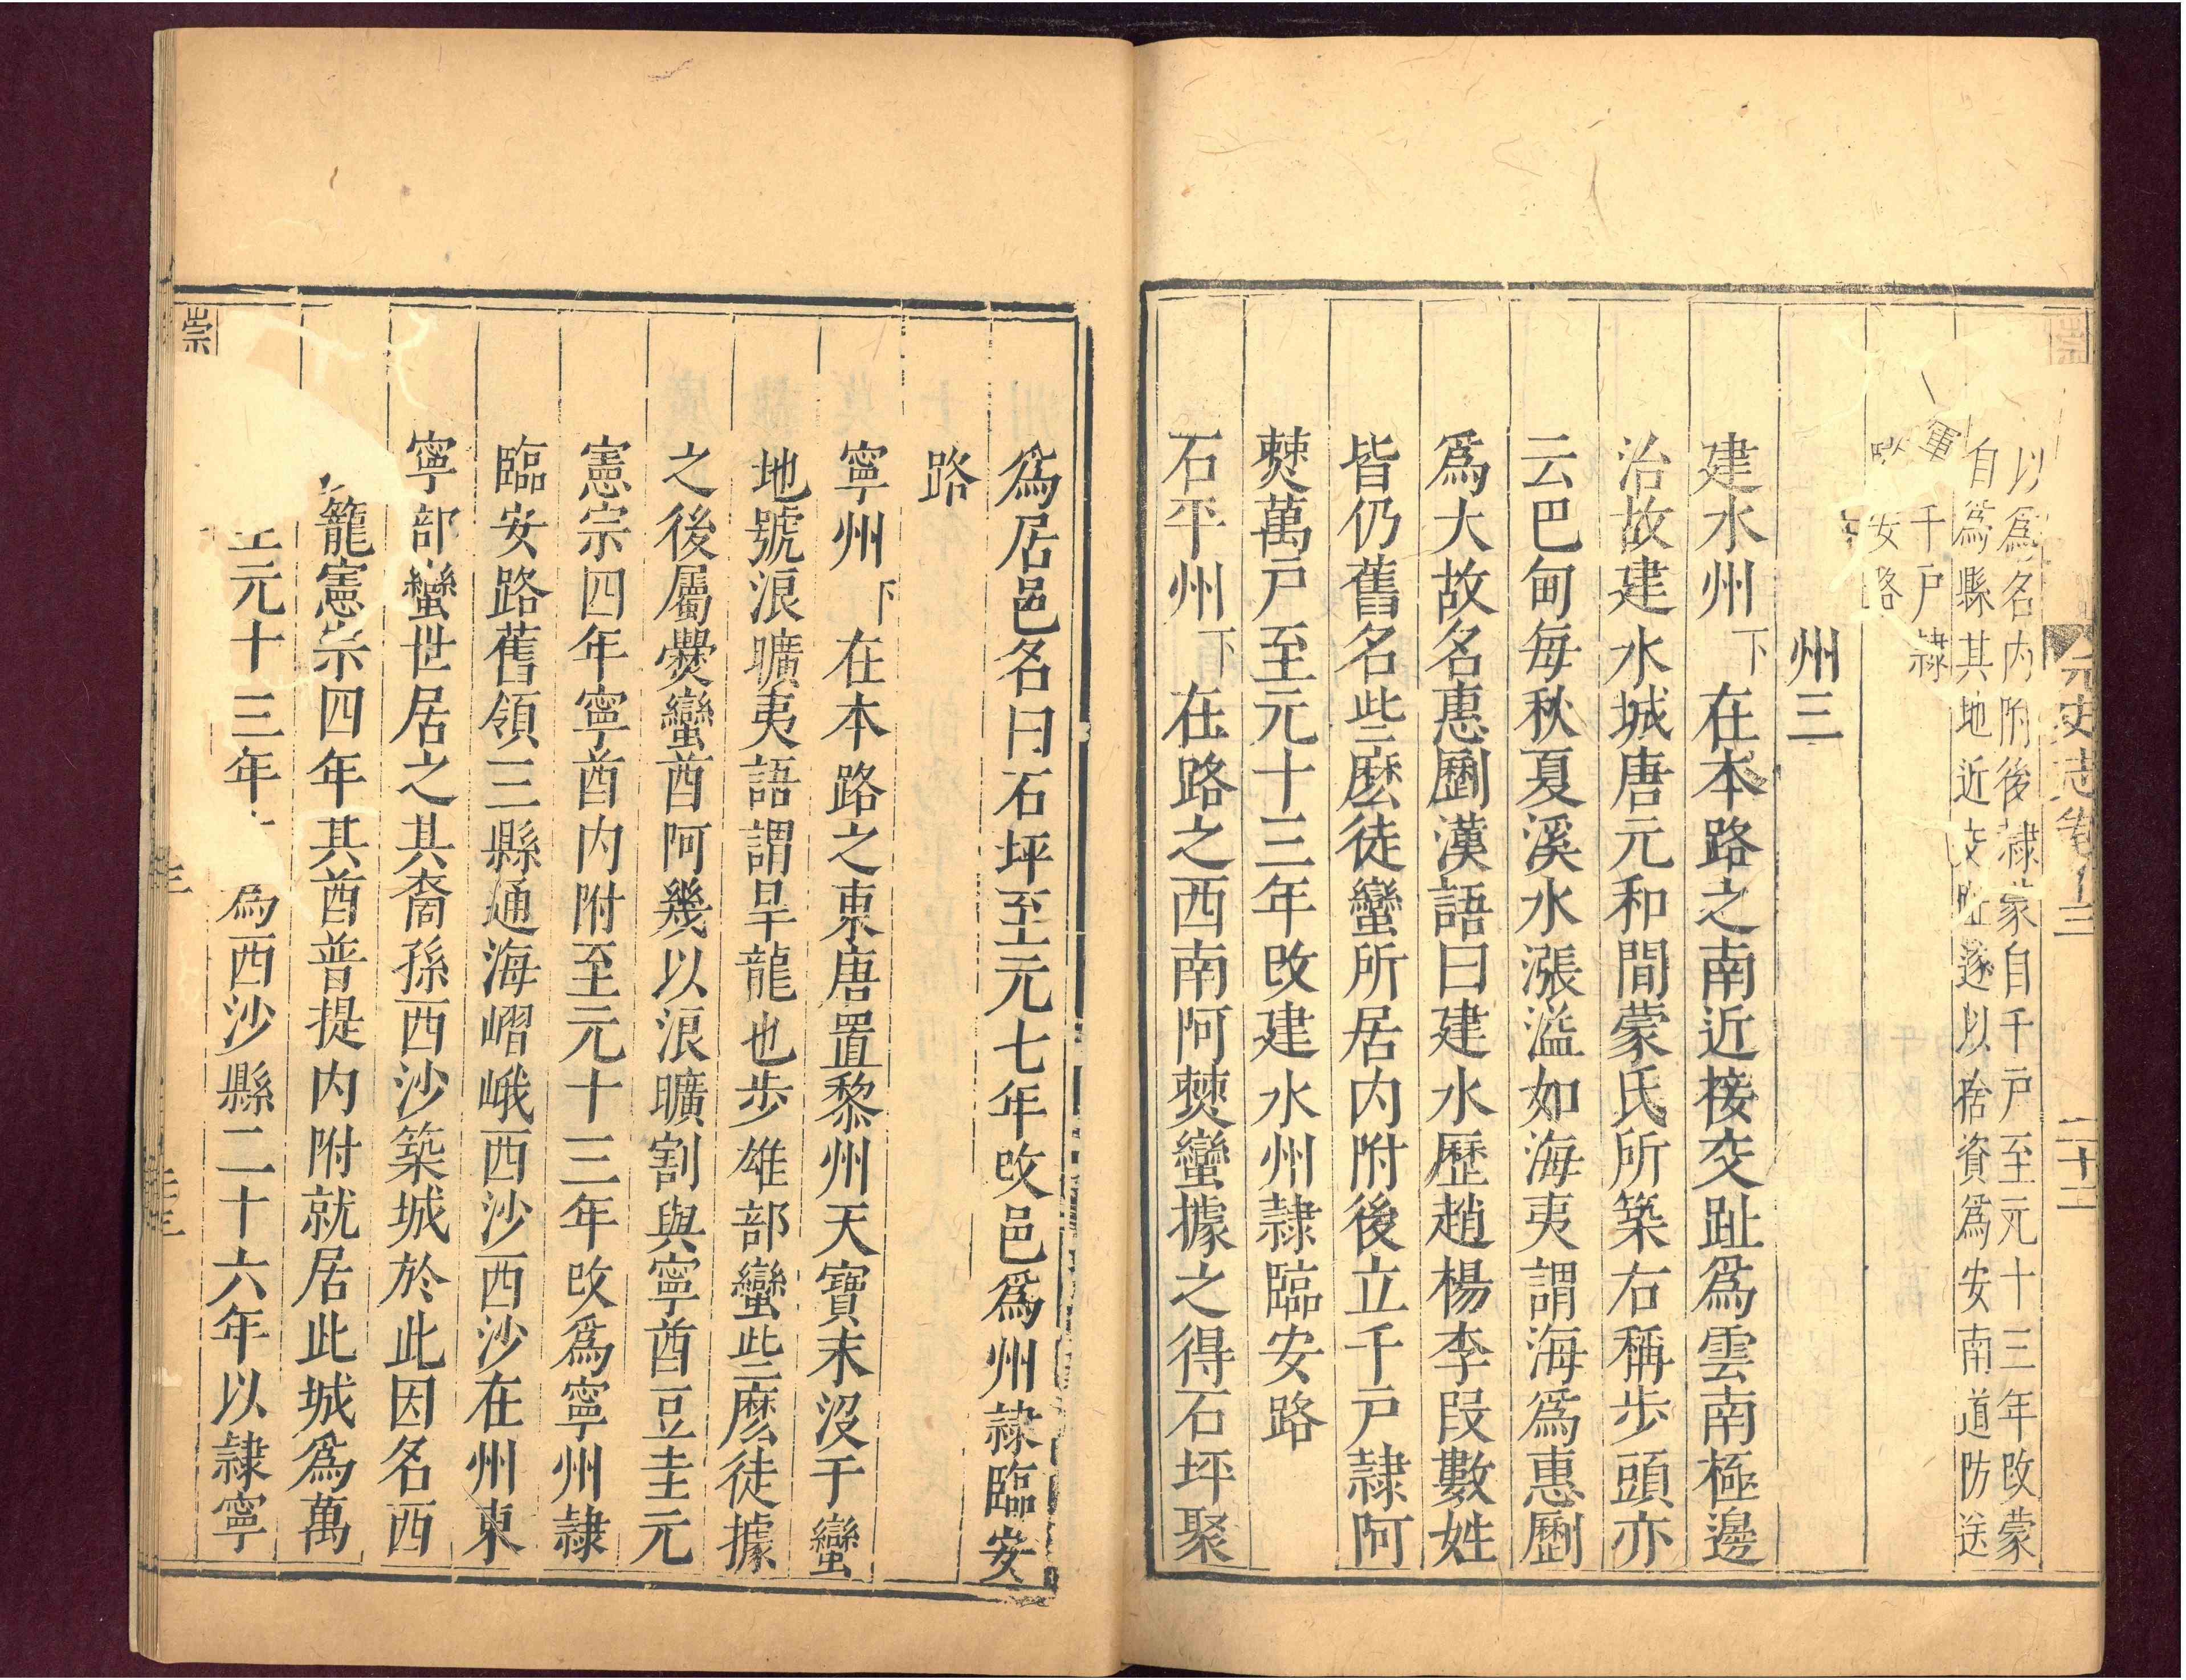 元史志卷十三 二十二
以爲名內附後隸蒙自千戶至元十三年改蒙
自爲縣其地近交趾遂以捨資爲安南道防送
軍千戶隸
安路
州三
建水州下在本路之南近接交趾爲雲南極邊
治故建水城唐元和間蒙氏所築右稱步頭亦
云巴甸每秋夏溪水漲溢如海夷謂海爲惠㔉
爲大故名惠㔉漢語曰建水歷趙楊李段數姓
皆仍舊名些麽徒蠻所居内附後立千戶隸阿
僰萬戶至元十三年改建水州隸臨安路
石平州下在路之西南阿僰蠻據之得石坪聚
爲居邑名曰石坪至元七年改邑爲州隸臨安
路
寧州下在本路之東唐置黎州天寶末没于蠻
地號浪曠夷語謂旱龍也步雄部蠻些麽徒據
之後屬爨蠻酋阿幾以浪曠割與寧酋豆圭元
憲宗四年寧酋内附至元十三年改爲寧州隸
臨安路舊領三縣通海嶍峨西沙西沙在州東
寧部蠻世居之其裔孫西沙築城於此因名西
籠憲宗四年其酋普提内附就居此城爲萬
元十三年爲西沙縣二十六年以隸寧
崇